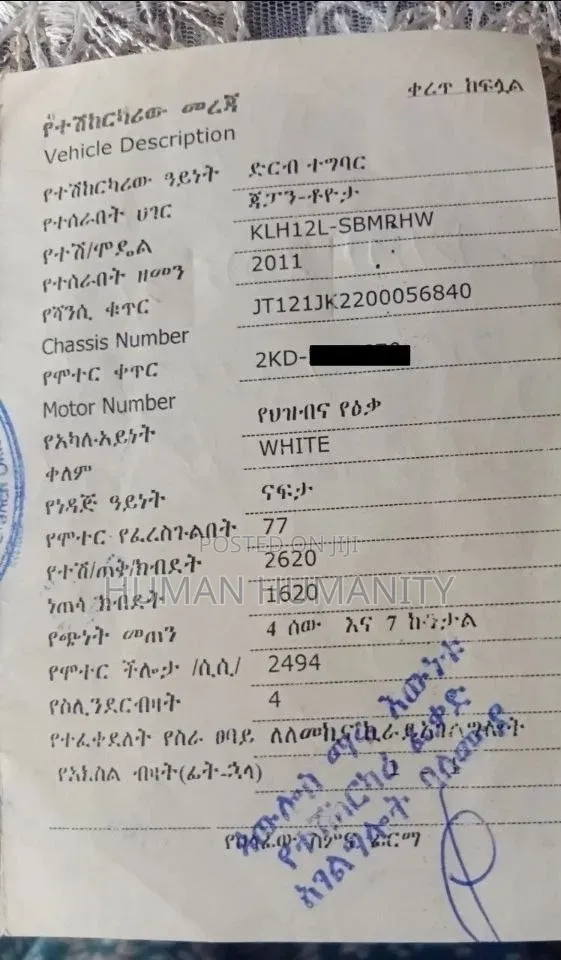 ቀረጥ ከፍሏል
የተሽከርካሪው መረጃ
Vehicle Description
የተሽከርካሪው ዓይነት ድርብ ተግባር
የተሰራበት ሀገር ጃፓን-ቶዮታ
የተሽ/ሞዴል KLH12L-SBMRHW
የተሰራበት ዘመን 2011
የሻንሲ ቁጥር JT121JK2200056840
Chassis Number
የሞተር ቀጥር 2KD-
Motor Number
የአካሉአይነት የህዝብና የዕቃ
ቀለም WHITE
የነዳጅ ዓይነት ናፍታ
የሞተር የፈረስጉልበት 77
POSTED ON JIJI
የተሽ/ጠቅ/ክብደት 2620
HUMAN HUMANITY
ነጠላ ክብደት 1620
የጭነት መጠን 4 ሰው እና 7 ኩንታል
የሞተር ችሎታ /ሲሲ/ 2494
የሲሊንደርብዛት 4
የተፈቀደለት የስራ ፀባይ
የአክስል ብዛት(ፊት-ኋላ)
ፊርማ